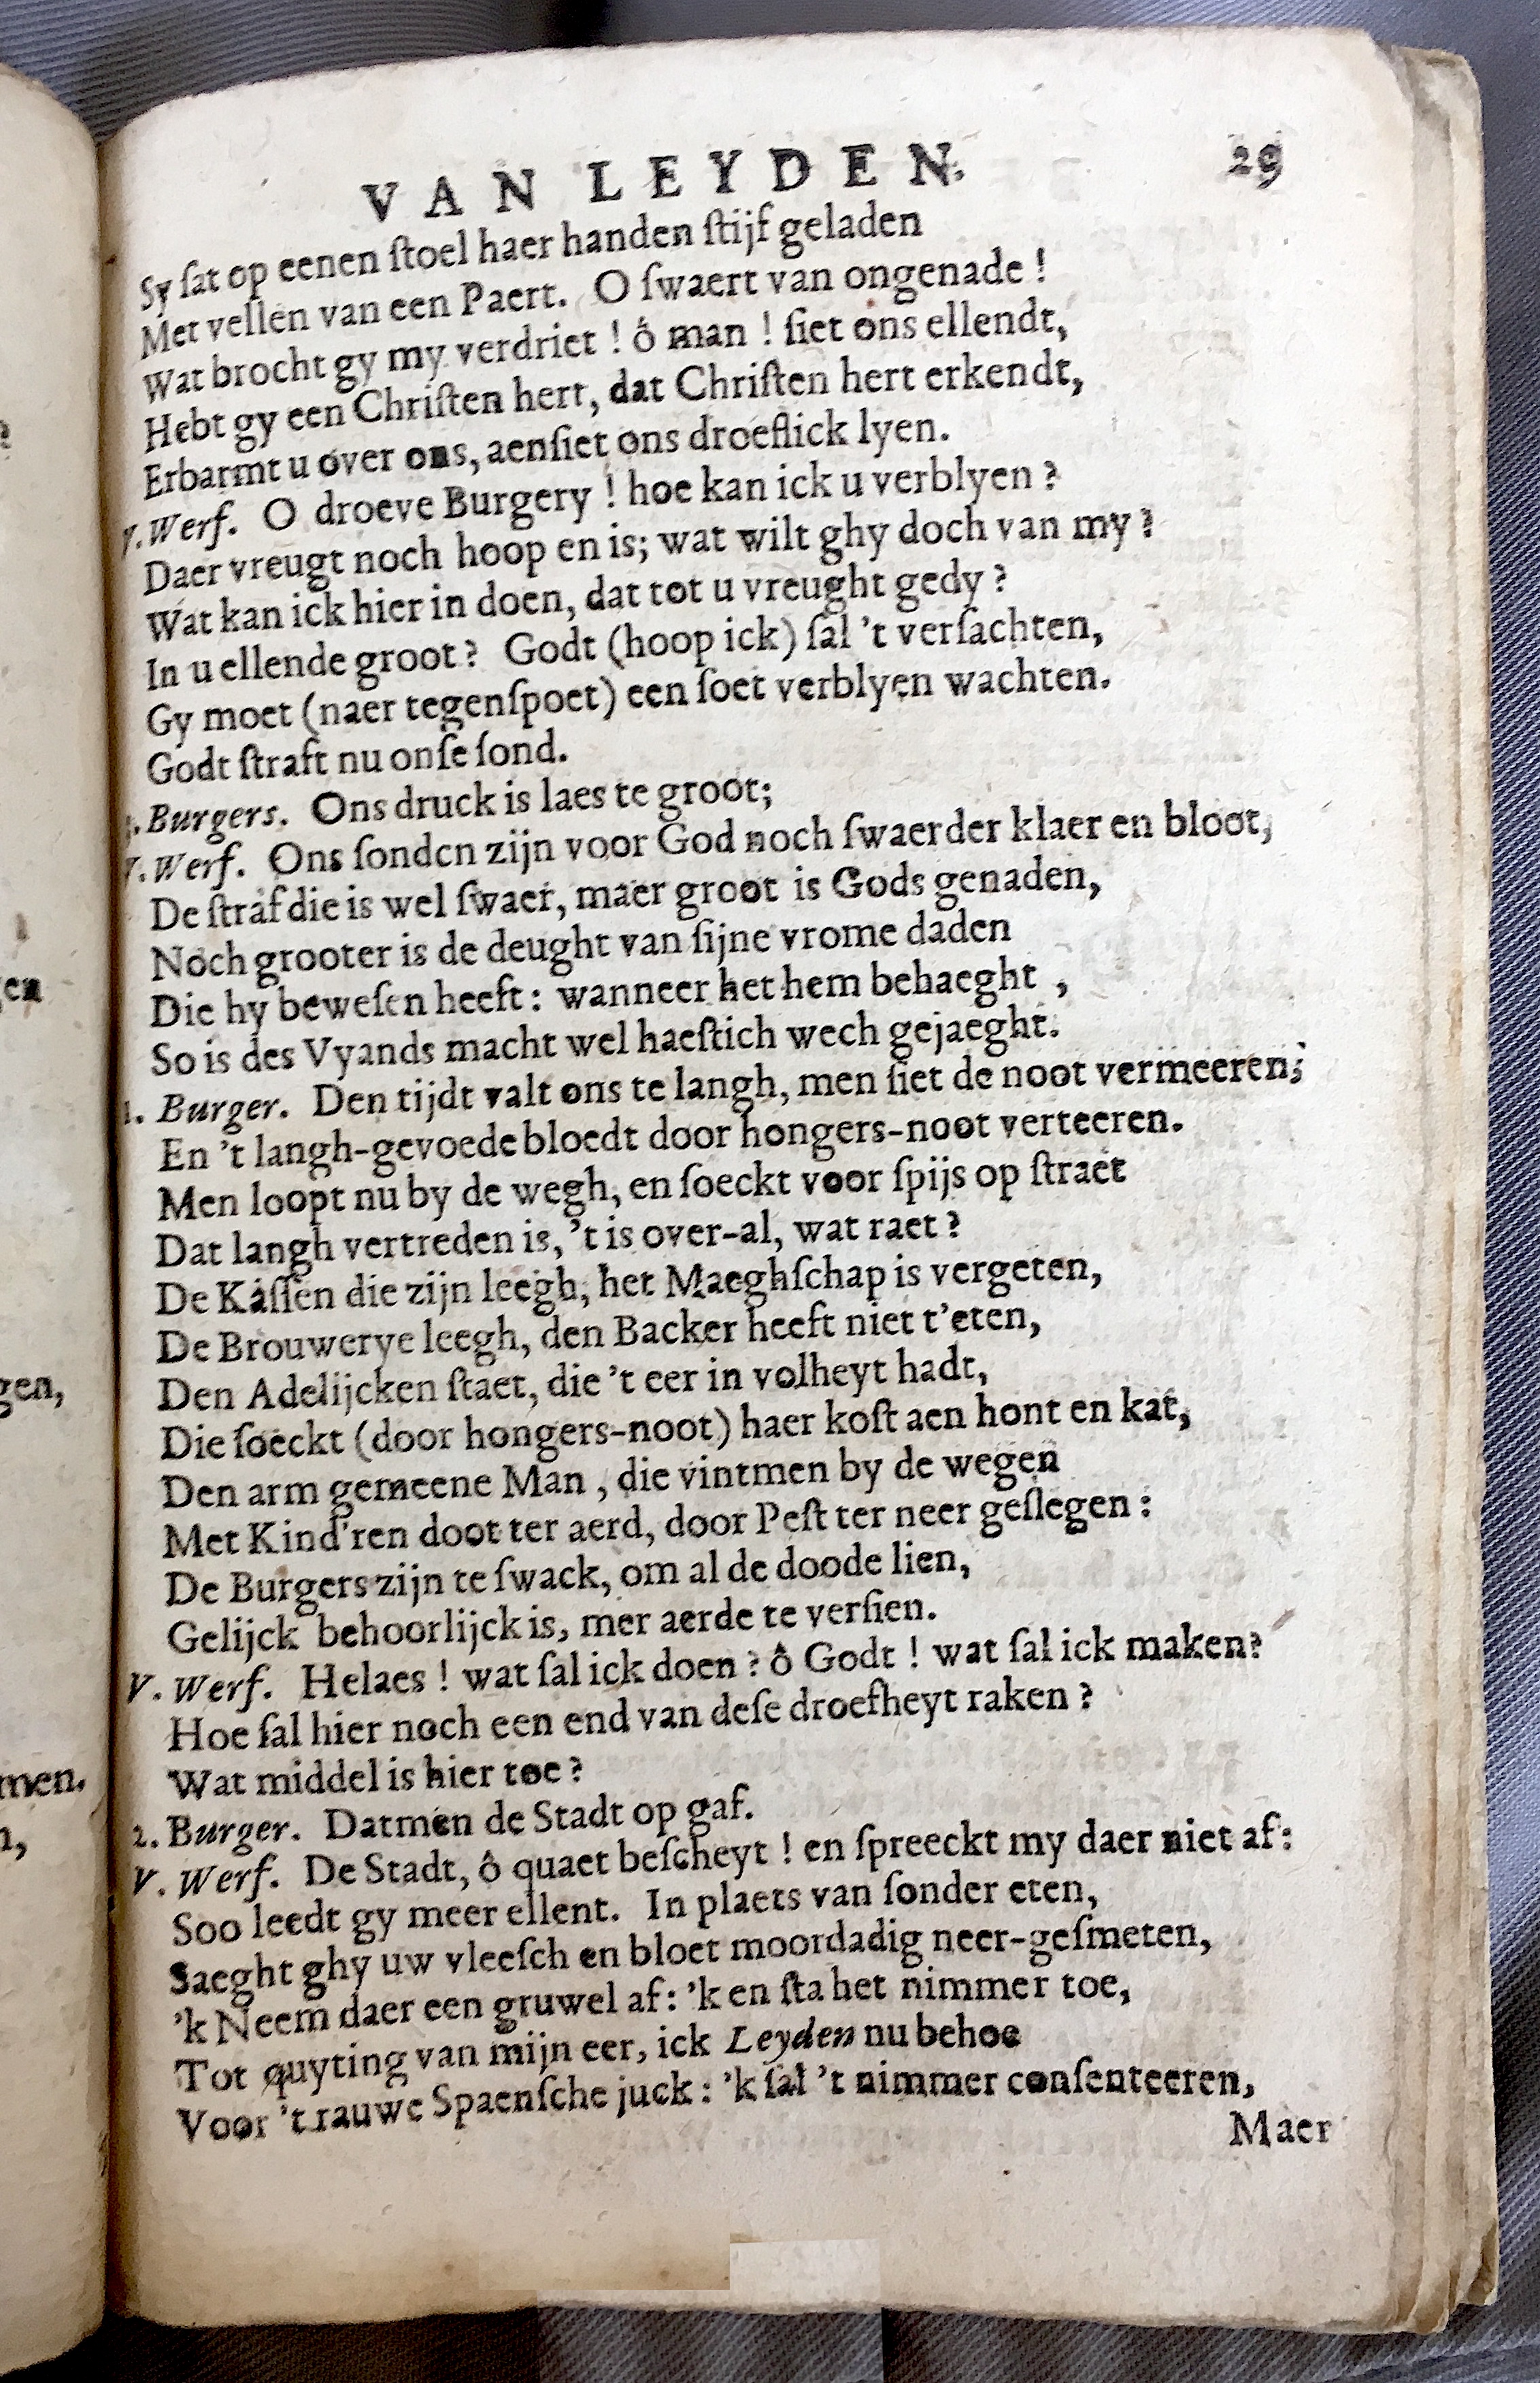 VAN LEYDEN. 29
Sy ſat op eenen ſtoel haer handen ſtijf geladen
Met vellen van een Paert. O ſwaert van ongenade !
Wat brocht gy my verdriet ! ô man ! ſiet ons ellendt,
Hebt gy een Chriſten hert, dat Chriſten hert erkendt,
Erbarmt u over ons, aenſiet ons droeflick lyen.
V. Werf. O droeve Burgery ! hoe kan ick u verblyen ?
Daer vreugt noch hoop en is; wat wilt ghy doch van my ?
Wat kan ick hier in doen, dat tot u vreught gedy ?
In u ellende groot ? Godt (hoop ick) ſal 't verſachten,
Gy moet (naer tegenſpoet) een ſoet verblyen wachten.
Godt ſtraft nu onſe ſond.
Burgers. Ons druck is laes te groot;
V. Werf. Ons ſonden zijn voor God noch ſwaerder klaer en bloot,
De ſtraf die is wel ſwaer, maer groot is Gods genaden,
Noch grooter is de deught van ſijne vrome daden
Die hy beweſen heeft : wanneer het hem behaeght ,
So is des Vyands macht wel haeſtich wech gejaeght.
1. Burger. Den tijdt valt ons te langh, men ſiet de noot vermeeren;
En 't langh-gevoede bloedt door hongers-noot verteeren.
Men loopt nu by de wegh, en ſoeckt voor ſpijs op ſtraet
Dat langh vertreden is, 't is over-al, wat raet ?
De Kaſſen die zijn leegh, het Maeghſchap is vergeten,
De Brouwerye leegh, den Backer heeft niet t'eten,
Den Adelijcken ſtaet, die 't eer in volheyt hadt,
Die ſoeckt (door hongers-noot) haer koſt aen hont en kat,
Den arm gemeene Man , die vintmen by de wegen
Met Kind'ren doot ter aerd, door Peſt ter neer geſlegen :
De Burgers zijn te ſwack, om al de doode lien,
Gelijck behoorlijck is, met aerde te verſien.
V. Werf. Helaes ! wat ſal ick doen ? ô Godt ! wat ſal ick maken?
Hoe ſal hier noch een end van deſe droefheyt raken ?
Wat middel is hier toe ?
2. Burger. Datmen de Stadt op gaf.
V. Werf. De Stadt, ô quaet beſcheyt ! en ſpreeckt my daer niet af :
Soo leedt gy meer ellent. In plaets van ſonder eten,
Saeght ghy uw vleeſch en bloet moordadig neer-geſmeten,
'k Neem daer een gruwel af : 'k en ſta het nimmer toe,
Tot quyting van mijn eer, ick Leyden nu behoe
Voor 't rauwe Spaenſche juck : 'k ſal 't nimmer conſenteeren,
Maer
en
gen,
men.
n,